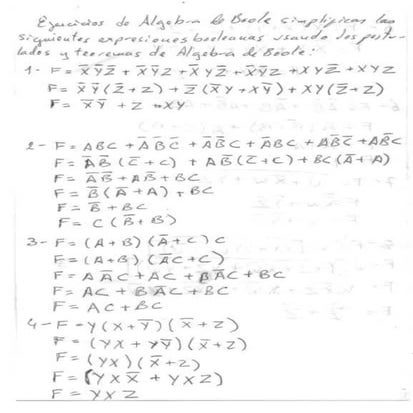 Ejercicios de Algebra de Boole simplificar las
siguientes expresiones booleanas usando los postu-
lados y teoremas de Algebra de Boole:
1- F = X̅Y̅Z̅ + X̅Y̅Z + X̅YZ̅ + XY̅Z̅ + XYZ̅ + XYZ
F = X̅Y̅(Z̅+Z) + Z̅(X̅Y+XY̅) + XY(Z̅+Z)
F = X̅Y̅ + Z + XY
2- F = ABC + A̅B̅C̅ + A̅B̅C + A̅BC + AB̅C̅ + AB̅C
F = A̅B̅(C̅+C) + AB̅(C̅+C) + BC(A̅+A)
F = A̅B̅ + AB̅ + BC
F = B̅(A̅+A) + BC
F = B̅ + BC
F = C(B̅+B)
3- F = (A+B)(A̅+C)C
F = (A+B)(A̅C+C)
F = AA̅C + AC + BA̅C + BC
F = AC + BA̅C + BC
F = AC + BC
4- F = Y(X+Y̅)(X̅+Z)
F = (YX + YY̅)(X̅+Z)
F = (YX)(X̅+Z)
F = (YXX̅ + YXZ)
F = YXZ